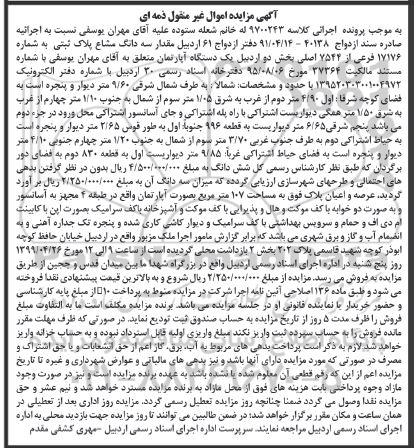 آگهی مزایده اموال غیر منقول ذمه ای
به موجب پرونده اجرائی کلاسه ۹۷۰۰۲۴۳ له خانم شعله ستوده علیه آقای مهران یوسفی نسبت به اجرائیه
صادره سند ازدواج ۴۰۱۳۸ - ۹۱/۰۴/۱۴ دفتر ازدواج ۶۱ اردبیل مقدار سه دانگ مشاع پلاک ثبتی به شماره
۱۷۱۷۶ فرعی از ۷۵۴۴ اصلی بخش دو اردبیل یک دستگاه آپارتمان متعلق به آقای مهران یوسفی با شماره
مستند مالکیت ۳۷۳۶۴ مورخ ۹۵/۰۸/۰۶ دفترخانه اسناد رسمی ۳۰ اردبیل با شماره دفتر الکترونیک
۱۳۹۵۲۰۳۰۳۰۰۱۰۰۴۹۷۲ با حدود و مشخصات: شمالا : به طرف شمال شرقی ۹/۶۰ متر دیوار و پنجره است به
فضای کوچه شرقا: اول ۴/۹۰ متر دوم از غرب به شرق ۱/۰۵ متر سوم از شمال به جنوب ۱/۱۰ متر چهارم از غرب
به شرق ۱/۵۰ متر همگی دیواریست اشتراکی با راه پله اشتراکی و جای آسانسور اشتراکی محل ورود در جزء دوم
می باشد پنجم شرقی ۶/۶۵ متر دیواریست به قطعه ۹۹۶ جنوبا: اول به طور قوس ۲/۶۵ متر دیوار و پنجره است
به حیاط اشتراکی دوم به طرف جنوب غربی ۳/۷۰ متر سوم از شمال به جنوب ۱/۲۰ متر چهارم جنوبی ۴/۱۰ متر
دیوار و پنجره است به فضای حیاط اشتراکی غربا: ۹/۸۵ متر دیواریست اول به قطعه ۸۳۰ دوم به فضای دور
برگردان که طبق نظر کارشناس رسمی کل شش دانگ به مبلغ ۴/۵۰۰/۰۰۰/۰۰۰ ریال بدون در نظر گرفتن بدهی
های احتمالی و طرحهای شهرسازی ارزیابی گردیده که میزان سه دانگ آن به مبلغ ۲/۲۵۰/۰۰۰/۰۰۰ ریال بر آورد
گردید، عرصه و اعیان پلاک فوق به مساحت ۱۰۷ متر مربع بصورت آپارتمان واقع در طبقه ۴ مجهز به آسانسور
و به صورت دو خوابه با کف موکت و هال و پذیرایی با کف موکت و آشپزخانه با کف سرامیک بصورت اپن با کابینت
ام دی اف و حمام و سرویس بهداشتی با کف سرامیک و دیوار کاشی کاری شده و پنجره تک جداره آهنی و به
انضمام آب و گاز و برق شهری می باشد که برابر گزارش مامور اجرا ملک مزبور واقع در اردبیل خیابان حافظ کوچه
ابوذر کوچه شهید قاسمی پلاک ۲۰۲ بخش ۲ بازداشت محلی گردیده است از ساعت ۹ الی ۱۲ مورخ ۱۳۹۹/۰۴/۲۶
روز پنج شنبه در اداره اجرای اسناد رسمی اردبیل واقع در بزرگراه شهدا ما بین میدان قدس و ججین از طریق
مزایده به فروش می رسد. مزایده از مبلغ ۲/۲۵۰/۰۰۰/۰۰۰ ریال شروع و به بالاترین قیمت پیشنهادی نقدا فروخته
می شود و طبق ماده ۱۳۶ اصلاحی آئین نامه اجرا شرکت در مزایده منوط به پرداخت ۱۰٪ از مبلغ پایه کارشناسی
و حضور خریدار یا نماینده قانونی او در جلسه مزایده می باشد. برنده مزایده مکلف است ما به التفاوت مبلغ
فروش را ظرف مدت ۵ روز از تاریخ مزایده به حساب صندوق ثبت تودیع نماید. در صورتی که ظرف مهلت مقرر
مانده فروش را به حساب سپرده ثبت واریز نکند مبلغ واریزی اولیه قابل استرداد نبوده و به حساب خزانه واریز
خواهد شد. لازم به ذکر است پرداخت بدهی های مربوط به آب، برق، گاز اعم از حق انشعاب و یا حق اشتراک و
مصرف در صورتی که مورد مزایده دارای آنها باشد و نیز بدهی های مالیاتی و عوارض شهرداری و غیره تا تاریخ
مزایده اعم از این که رقم قطعی آن معلوم شده یا نشده باشد به عهده برنده مزایده است و نیز در صورت وجود
مازاد وجوه پرداختی بابت هزینه های فوق از محل مازاد به برنده مزایده مسترد خواهد شد و نیم عشر و حق
مزایده نقدا وصول می گردد ضمنا چنانچه روز مزایده تعطیل رسمی گردد، مزایده روز اداری بعد از تعطیلی در
همان ساعت و مکان مقرر برگزار خواهد شد؛ در ضمن طالبین می توانند تا روز مزایده جهت بازدید محلی به اداره
اجرای اسناد رسمی اردبیل مراجعه نمایند. سرپرست اداره اجرای اسناد رسمی اردبیل -مهری کشفی مقدم